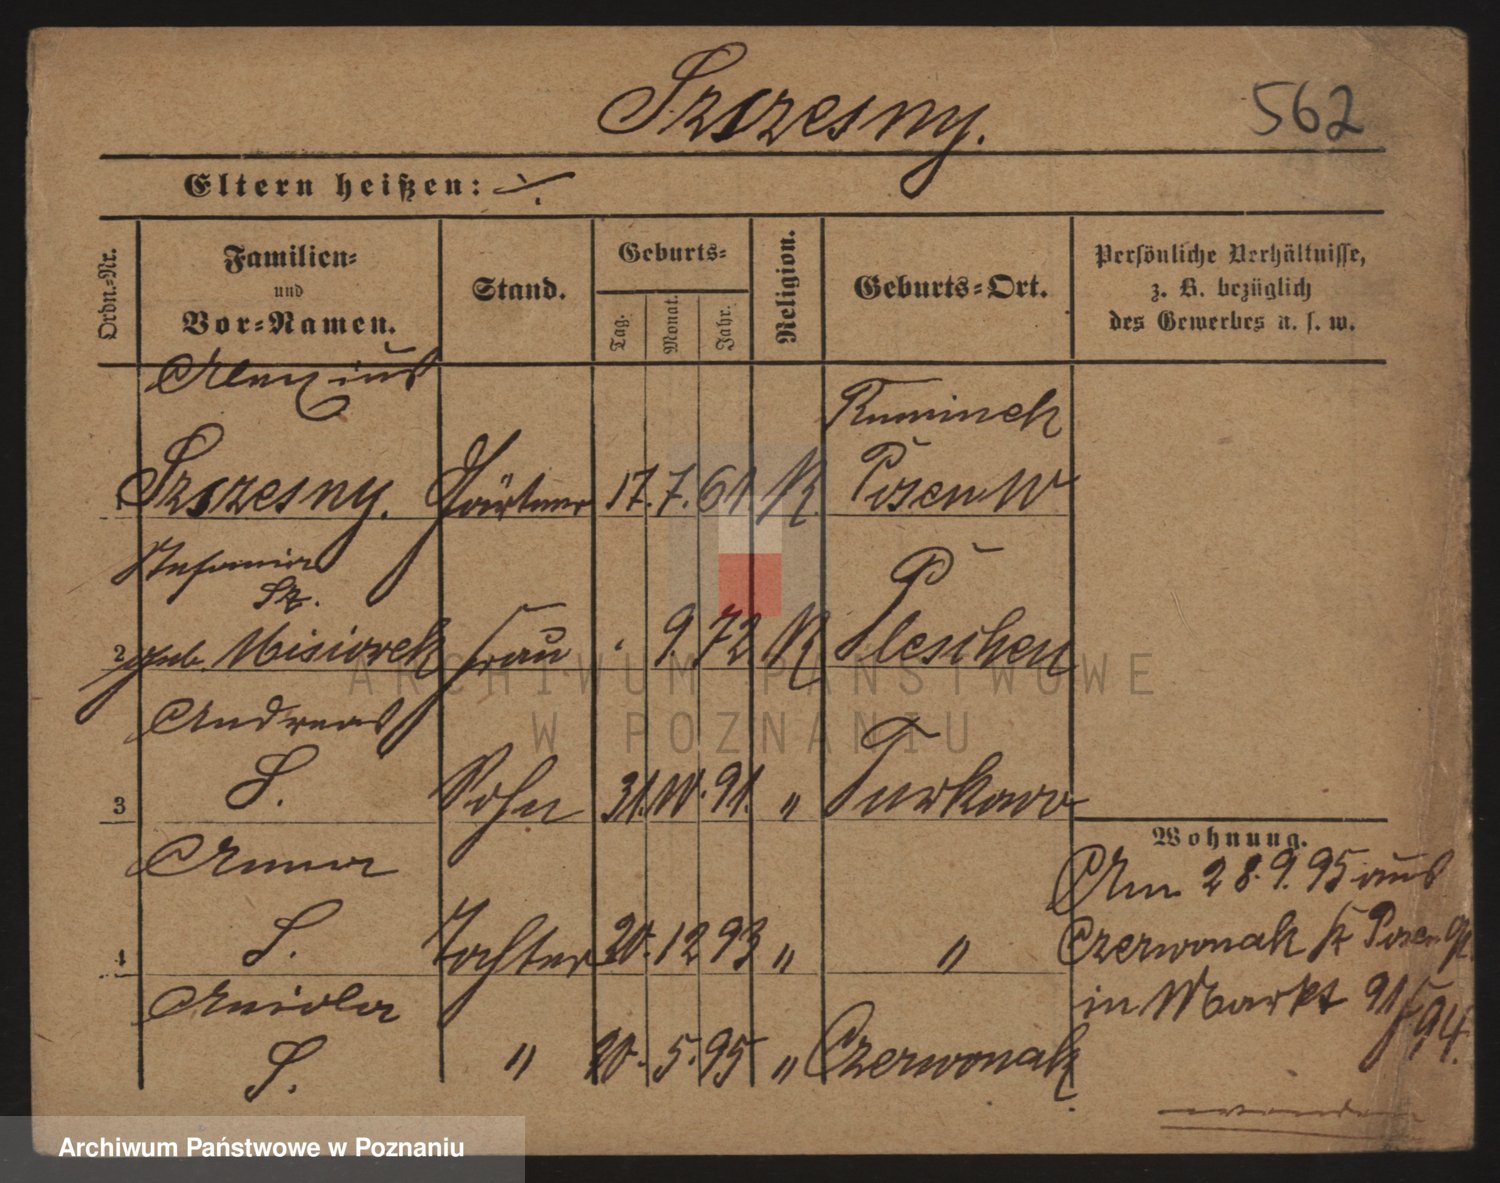 Szczesny.
562
Eltern heißen: ./.
Ordn.-Nr.
Familien-
und
Vor-Namen.
Stand.
Geburts-
Tag.
Monat.
Jahr.
Religion.
Geburts-Ort.
Persönliche Verhältnisse,
z. B. bezüglich
des Gewerbes u. s. w.
1
Szczesny.
Gärtner
17. 7. 61. K.
Posen W
Sz.
2
geb. Misiorek
Frau
9. 72
K
Pleschen
Andreas
3
S.
Sohn
31. 10. 91.
"
Turkowo
Anna
4
S.
Tochter
20. 12 93
"
"
S.
"
20. 5. 95
"
Czerwonak
Wohnung.
Am 28. 9. 95 aus
Czerwonak Kr Posen
in Markt 91
94.
wenden
ARCHIWUM PAŃSTWOWE
W POZNANIU
Archiwum Państwowe w Poznaniu